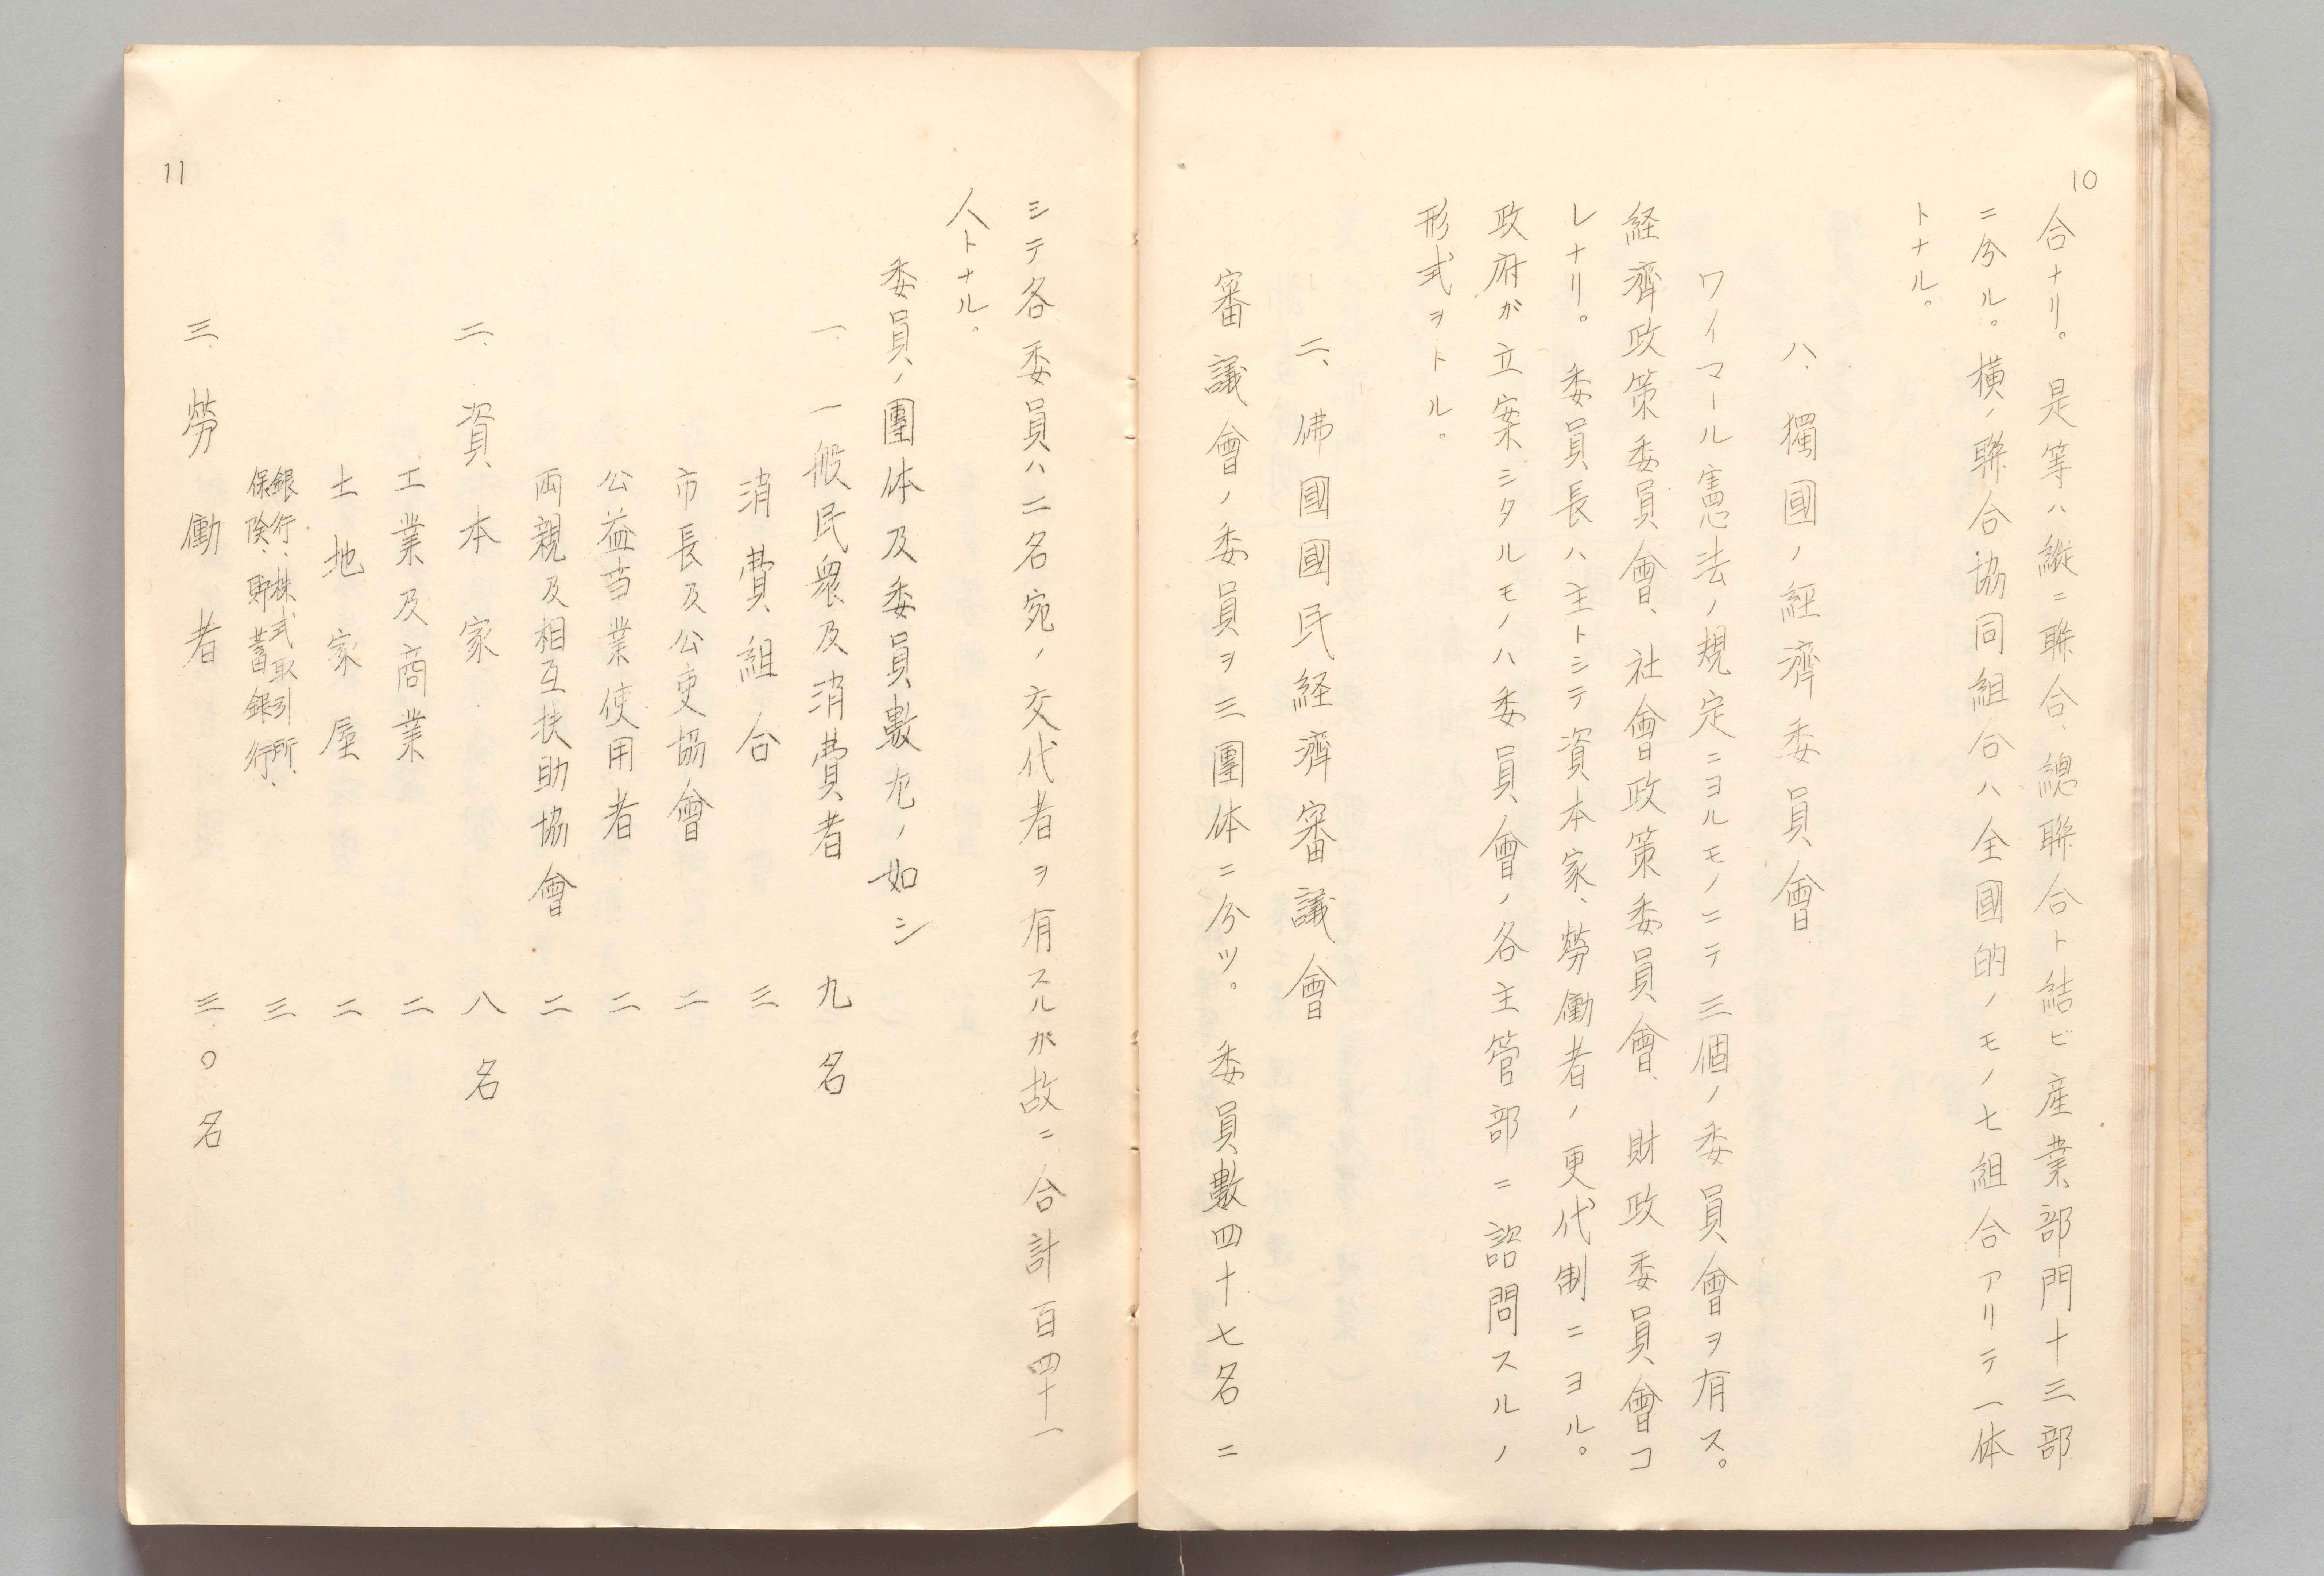 10
合ナリ。是等ハ縦ニ聯合、總聯合ト結ビ産業部門十三部
ニ分ル。横ノ聯合協同組合ハ全國的ノモノ七組合アリテ一体
トナル。
八、獨國ノ經濟委員會
ワイマール憲法ノ規定ニヨルモノニテ三個ノ委員會ヲ有ス。
経濟政策委員會、社會政策委員會、財政委員會コ
レナリ。委員長ハ主トシテ資本家、勞働者ノ更代制ニヨル。
政府ガ立案シタルモノハ委員會ノ各主管部ニ諮問スルノ
形式ヲトル。
二、佛國國民経濟審議會
審議會ノ委員ヲ三團体ニ分ツ。委員數四十七名ニ
11
シテ各委員ハ二名宛ノ交代者ヲ有スルガ故ニ合計百四十一
人トナル。
委員ノ團体及委員數左ノ如シ
一、一般民衆及消費者 九名
消費組合 三
市長及公吏協會 二
公益事業使用者 二
両親及相互扶助協會 二
二、資本家 八名
工業及商業 二
土地家屋 二
銀行、株式取引所、
保険、貯蓄銀行、 三
三、勞働者 三〇名